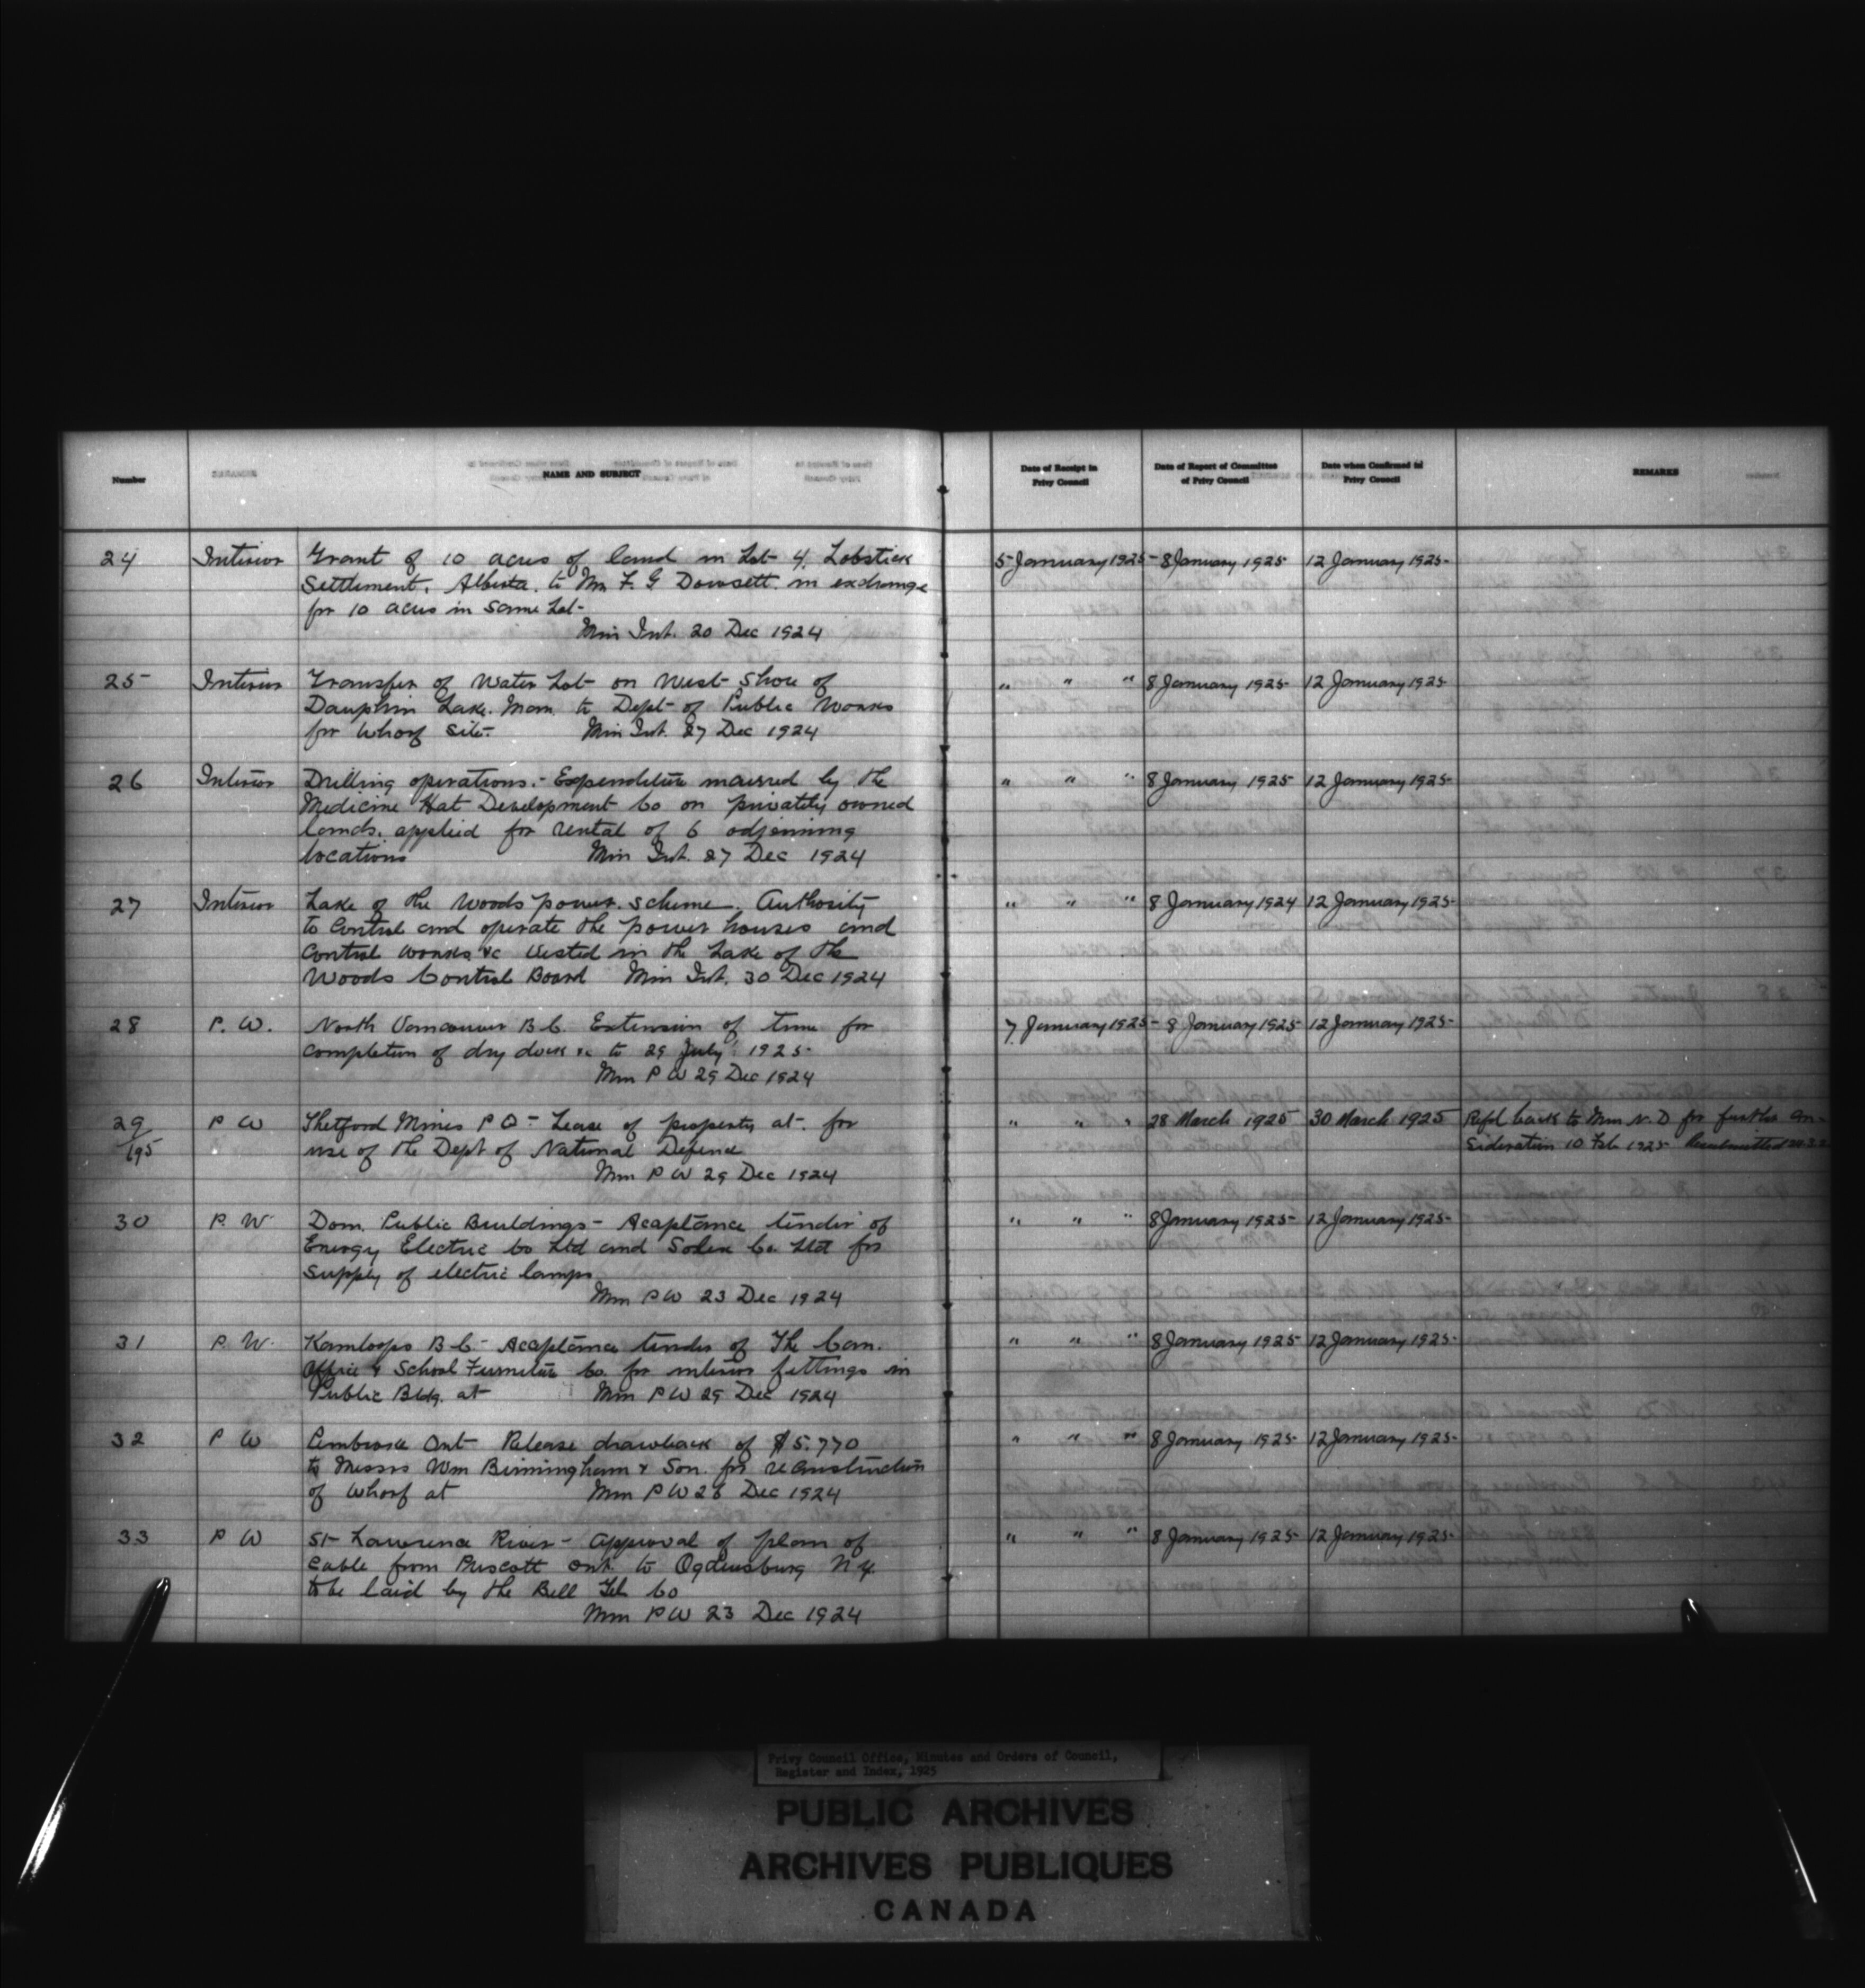 Number
NAME AND SUBJECT
Date of Receipt in Privy Council
Date of Report of Committee of Privy Council
Date when Confirmed in Privy Council
REMARKS
24 Interior Grant of 10 acres of land in Lot 4. Lobstick 5 January 1925 - 8 January 1925 12 January 1925
Settlement. Alberta. to Mr F. G Dowsett. in exchange
for 10 acres in same Lot-
Min Int. 20 Dec 1924
25 Interior Transfer of Water Lot on West Shore of " " " 8 January 1925 12 January 1925
Dauphin Lake. Man. to Dept of Public Works
for Wharf site. Min Int. 27 Dec 1924
26 Interior Drilling operations.- Expenditure incurred by the " " " 8 January 1925 12 January 1925
Medicine Hat Development Co on privately owned
lands. applied for rental of 6 adjoining
locations Min Int. 27 Dec 1924
27 Interior Lake of the Woods power scheme. Authority " " " 8 January 1924 12 January 1925
to Control and operate the power houses and
Control works &c vested in the Lake of the
Woods Control Board Min Int. 30 Dec 1924
28 P. W. North Vancouver B C. Extension of time for 7 January 1925 - 8 January 1925 12 January 1925
completion of dry dock &c to 29 July 1925
Min P W 29 Dec 1924
29/195 P W Thetford Mines P Q - Lease of property at. for " " " 28 March 1925 30 March 1925 Refd back to Min N. D for further con-
use of the Dept of National Defence sideration 10 Feb 1925 Resubmitted
Min P W 29 Dec 1924
30 P. W Dom. Public Buildings - Acceptance tender of " " " 8 January 1925 12 January 1925
Energy Electric Co Ltd and Solex Co. Ltd for
supply of electric lamps
Min P W 23 Dec 1924
31 P. W. Kamloops B C - Acceptance tender of The Can. " " " 8 January 1925 12 January 1925
Office & School Furniture Co. for interior fittings in
Public Bldg. at Min P W 29 Dec 1924
32 P W Pembroke Ont Release drawback of $5.770 " " " 8 January 1925 12 January 1925
to Messrs Wm Birmingham & Son. for reconstruction
of wharf at Min P W 26 Dec 1924
33 P W St Lawrence River - Approval of plan of " " " 8 January 1925 12 January 1925
cable from Prescott Ont. to Ogdensburg N Y.
to be laid by the Bell Tel Co
Min P W 23 Dec 1924
Privy Council Office, Minutes and Orders of Council,
Register and Index, 1925
PUBLIC ARCHIVES
ARCHIVES PUBLIQUES
CANADA